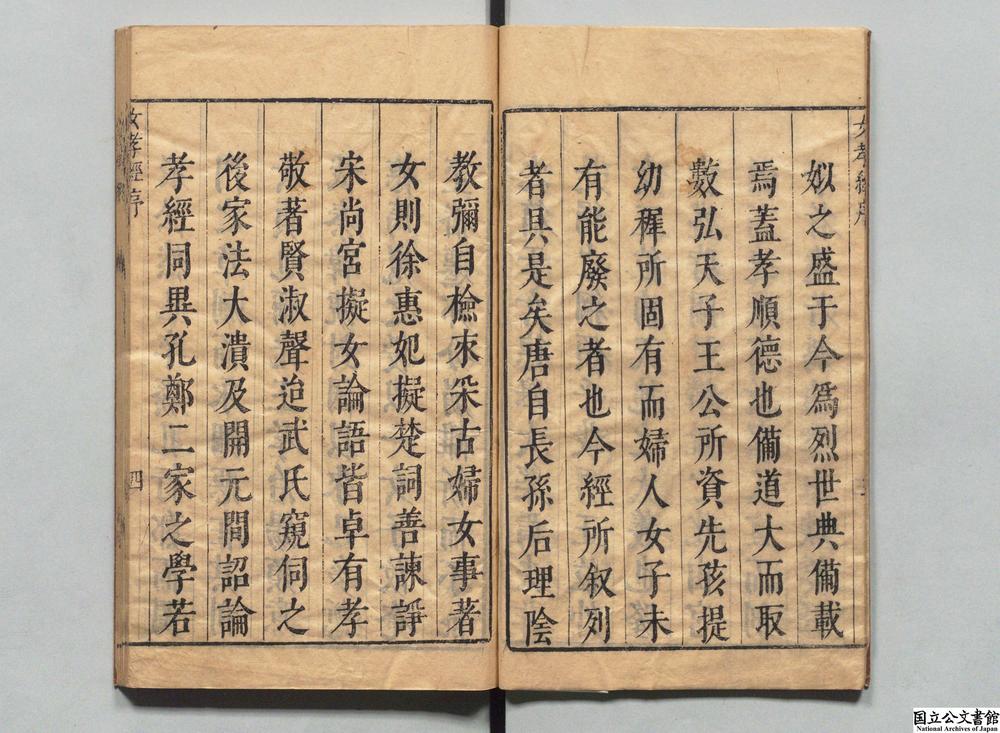 女孝經序
姒之盛于今為烈世典備載
焉蓋孝順德也備道大而取
數弘天子王公所資先孩提
幼穉所固有而婦人女子未
有能廢之者也今經所叙列
者具是矣唐自長孫后理陰
教彌自檢束采古婦女事著
女則徐惠妃擬楚詞善諫諍
宋尚宮擬女論語皆卓有孝
敬著賢淑聲迨武氏窺伺之
後家法大潰及開元間詔論
孝經同異孔鄭二家之學若
女孝經序
四
国立公文書館
National Archives of Japan